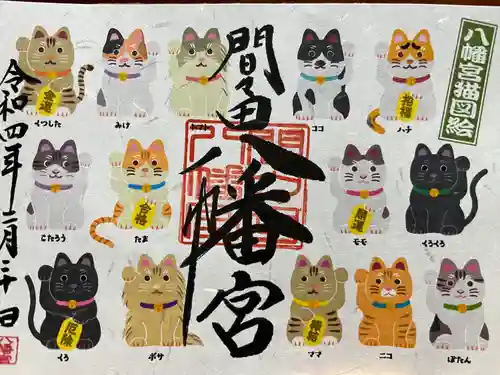 八幡宮猫図絵
間々田八幡宮
令和四年二月二十日
金運
くつした
みけ
ココ
招福
ハチ
こたろう
合格
たま
開運
モモ
くろくろ
厄除
くろ
ボサ
縁結
ママ
ニコ
ぼたん